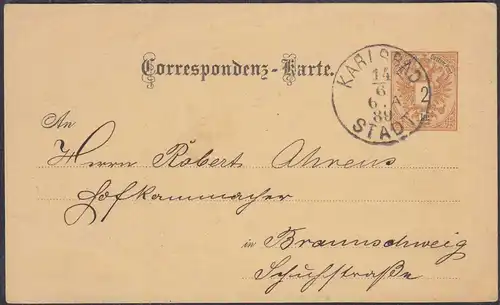 Correspondenz-Karte.
KARLSBAD
14
6
6. A
89
STADT
2
An
Herrn Robert Ahrens
Hofkammacher
in Braunschweig
Schuhstraße